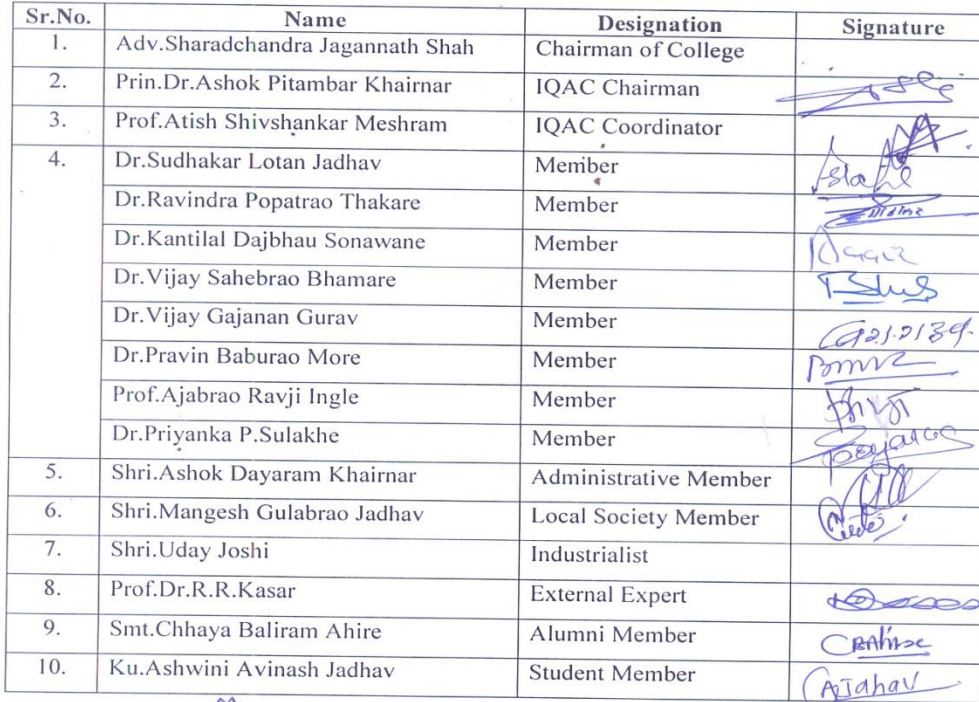 Sr.No. Name Designation Signature
1. Adv.Sharadchandra Jagannath Shah Chairman of College
2. Prin.Dr.Ashok Pitambar Khairnar IQAC Chairman
3. Prof.Atish Shivshankar Meshram IQAC Coordinator
4. Dr.Sudhakar Lotan Jadhav Member
Dr.Ravindra Popatrao Thakare Member
Dr.Kantilal Dajbhau Sonawane Member
Dr.Vijay Sahebrao Bhamare Member
Dr.Vijay Gajanan Gurav Member
Dr.Pravin Baburao More Member
Prof.Ajabrao Ravji Ingle Member
Dr.Priyanka P.Sulakhe Member
5. Shri.Ashok Dayaram Khairnar Administrative Member
6. Shri.Mangesh Gulabrao Jadhav Local Society Member
7. Shri.Uday Joshi Industrialist
8. Prof.Dr.R.R.Kasar External Expert
9. Smt.Chhaya Baliram Ahire Alumni Member
10. Ku.Ashwini Avinash Jadhav Student Member AJahav